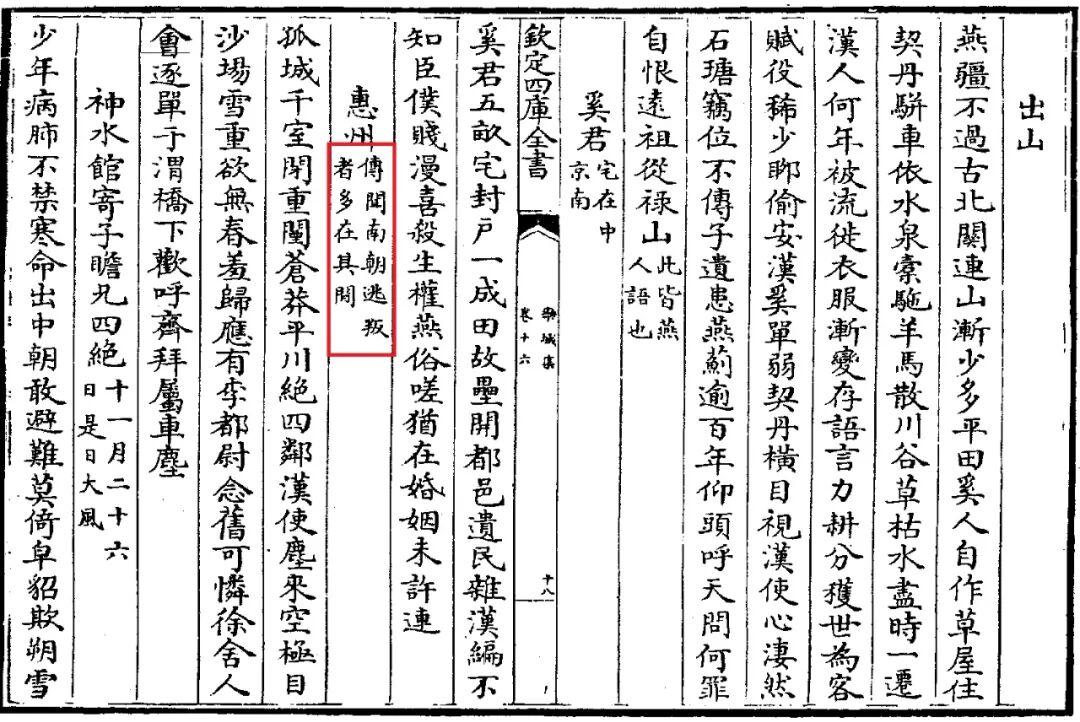 出山
燕疆不過古北闗連山漸少多平田奚人自作草屋住
契丹駢車依水泉橐駞羊馬散川谷草枯水盡時一遷
漢人何年被流徙衣服漸變存語言力耕分穫世為客
賦役稀少聊偷安漢奚單弱契丹橫目視漢使心淒然
石瑭竊位不傳子遺患燕薊逾百年仰頭呼天問何罪
自恨遠祖從祿山此皆燕
人語也
奚君宅在中
京南
欽定四庫全書
欒城集
卷十六
十八
奚君五畝宅封戶一成田故壘開都邑遺民雜漢編不
知臣僕賤漫喜殺生權燕俗嗟猶在婚姻未許連
惠州傳聞南朝逃叛
者多在其間
孤城千室閉重闉蒼莽平川絶四鄰漢使塵來空極目
沙場雪重欲無春羞歸應有李都尉念舊可憐徐舍人
會逐單于渭橋下歡呼齊拜屬車塵
神水館寄子瞻兄四絶十一月二十六
日是日大風
少年病肺不禁寒命出中朝敢避難莫倚皁貂欺朔雪